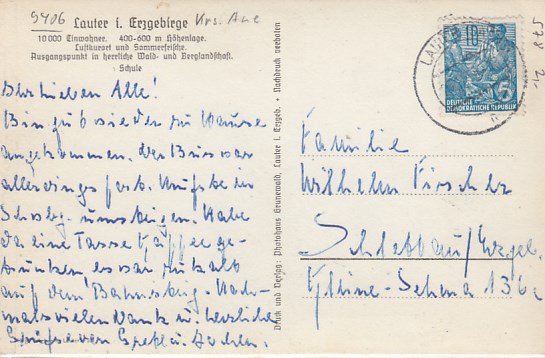 9406
Krs. Aue
Lauter i. Erzgebirge
10 000 Einwohner. 400-600 m Höhenlage.
Luftkurort und Sommerfrische.
Ausgangspunkt in herrliche Wald- und Berglandschaft.
Schule
Ihr Lieben Alle!
Bin gut wieder zu Hause
angekommen. Der Bus war
allerdings fort. Mußte in
umsteigen. Habe
da eine Tasse Kaffee ge-
trunken, es war zu kalt
auf dem Bahnsteig. Noch-
mals vielen Dank u. herzliche
Grüße von
Druck und Verlag: Photohaus Grunewald, Lauter i. Erzgeb. • Nachdruck verboten
LAUTER
10
DEUTSCHE
DEMOKRATISCHE REPUBLIK
Familie
Wilhelm Fischer
Schlettau/Erzgeb.
136c